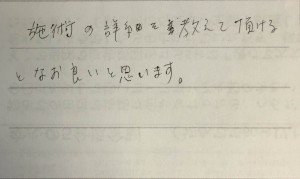 施術の詳細を教えて頂ける
となお良いと思います。